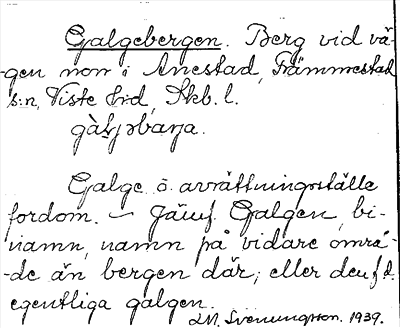 Galgebergen. Berg vid vä-
-gen norr i Anestad, Främmestad
s:n, Viste hd, Skb. l.
Galge o avrättningsställe
fordom. – Jämf. Galgen, bi-
namn, namn på vidare områ-
-de än bergen där, eller den f. d.
egentliga galgen.
LM. Svenungsson. 1939.